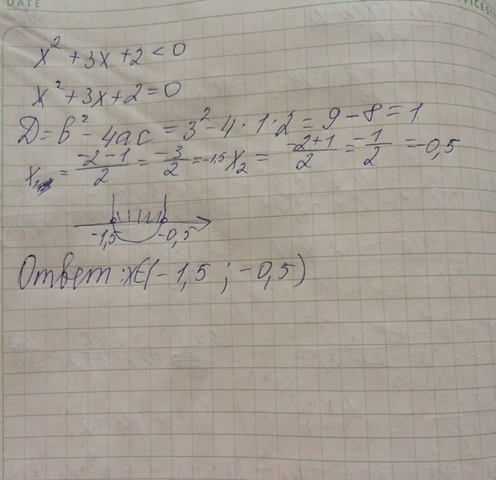 DATE
x² + 3x + 2 < 0
x² + 3x + 2 = 0
D = b² - 4ac = 3² - 4 · 1 · 2 = 9 - 8 = 1
x₁ = (-2-1)/2 = -3/2 = -1,5 x₂ = (-2+1)/2 = -1/2 = -0,5
-1,5 -0,5
Ответ: x∈(-1,5 ; -0,5)